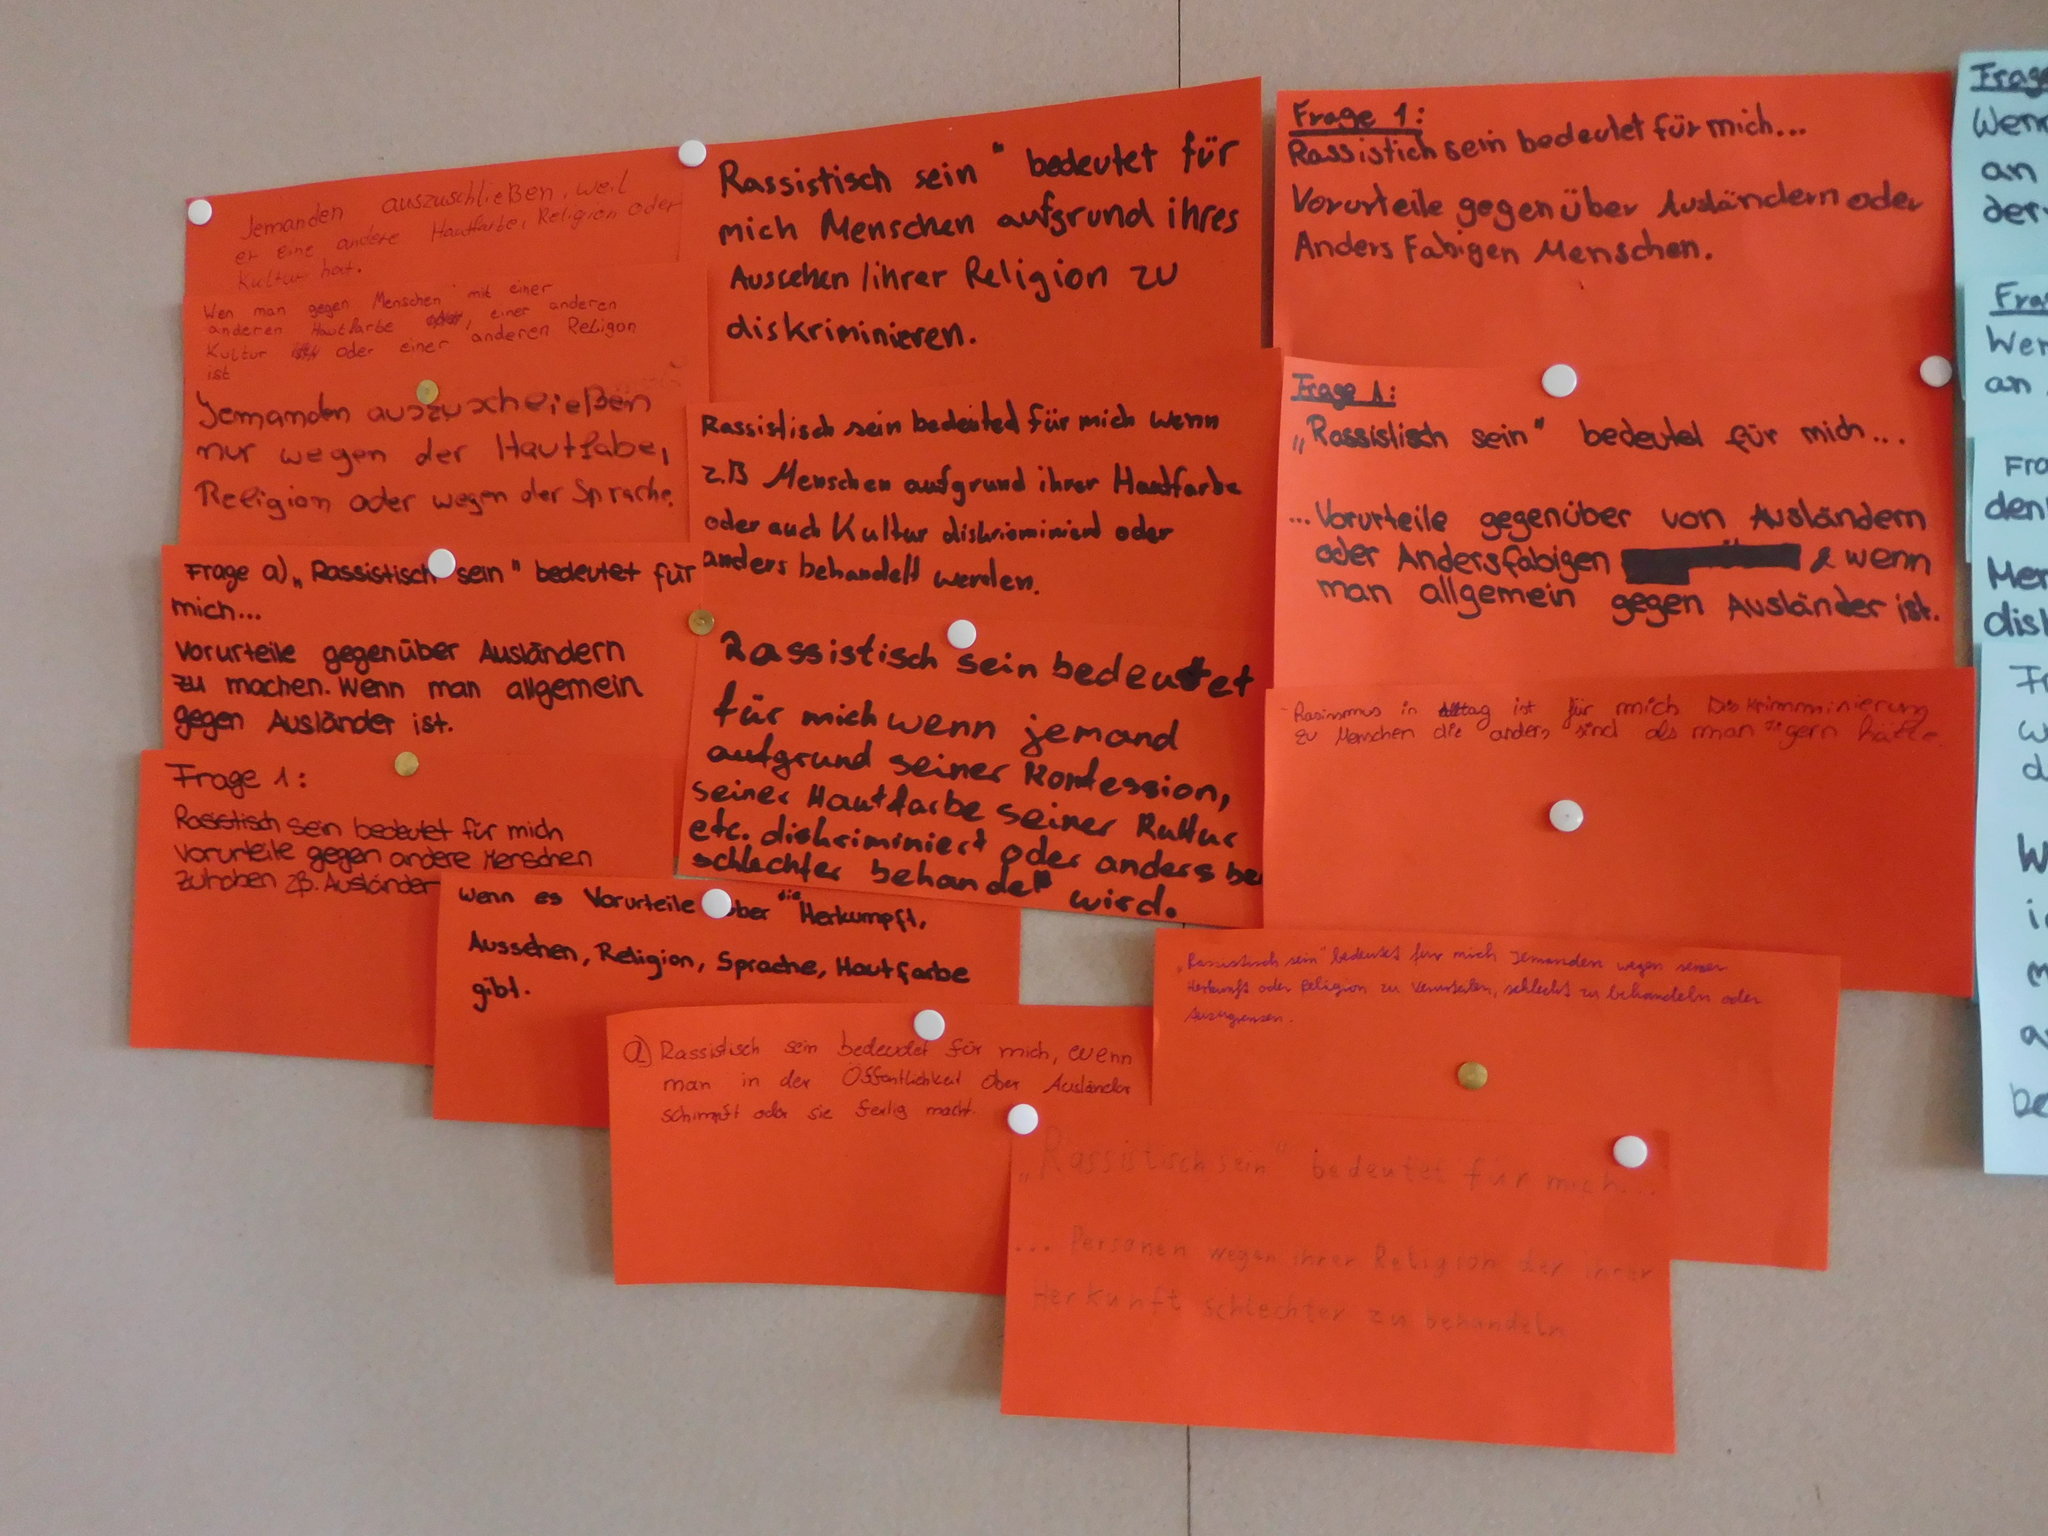 Jemanden auszuschließen, weil
er eine andere Hautfarbe, Religion oder
Kultur hat.
Wen man gegen Menschen mit einer
anderen Hautfarbe, einer anderen
Kultur oder einer anderen Religon
ist
Jemanden auszuschließen
nur wegen der Hautfabe,
Religion oder wegen der Sprache.
Frage a) „Rassistisch sein" bedeutet für
mich...
Vorurteile gegenüber Ausländern
zu machen. Wenn man allgemein
gegen Ausländer ist.
Frage 1:
Rassistisch sein bedeutet für mich
Vorurteile gegen andere Menschen
zuhaben zB. Ausländer
Rassistisch sein" bedeutet für
mich Menschen aufgrund ihres
Aussehen/ihrer Religion zu
diskriminieren.
Rassistisch sein bedeuted für mich wenn
z.B Menschen aufgrund ihrer Hautfarbe
oder auch Kultur diskriominiert oder
anders behandelt werden.
Rassistisch sein bedeutet
für mich wenn jemand
aufgrund seiner Konfession,
seiner Hautfarbe seiner Kultur
etc. diskriminiert oder anders be
schlechter behandelt wird.
wenn es Vorurteile über die Herkumpft,
Aussehen, Religion, Sprache, Hautfarbe
gibt.
a) Rassistisch sein bedeutet für mich, wenn
man in der Öffentlichkeit über Ausländer
schimpft oder sie fertig macht.
Frage 1:
Rassistich sein bedeutet für mich...
Vorurteile gegenüber Ausländern oder
Anders Fabigen Menschen.
Frage 1:
„Rassistisch sein" bedeutet für mich...
...Vorurteile gegenüber von Ausländern
oder Andersfabigen & wenn
man allgemein gegen Ausländer ist.
Rasissmus in alltag ist für mich Diskrimminierung
zu Menschen die anders sind als man gern hätte.
„Rassistisch sein" bedeutet für mich Jemanden wegen seiner
Herkunft oder Religion zu verurteilen, schlecht zu behandeln oder
Auszugrenzen.
„Rassistisch sein" bedeutet für mich...
... Personen wegen ihrer Religion der ihrer
Herkunft schlechter zu behandeln
Frage
Wenn
an
der
Fra
Wer
an
Fra
den
Mer
disk
Fr
w
d
W
i
m
a
be